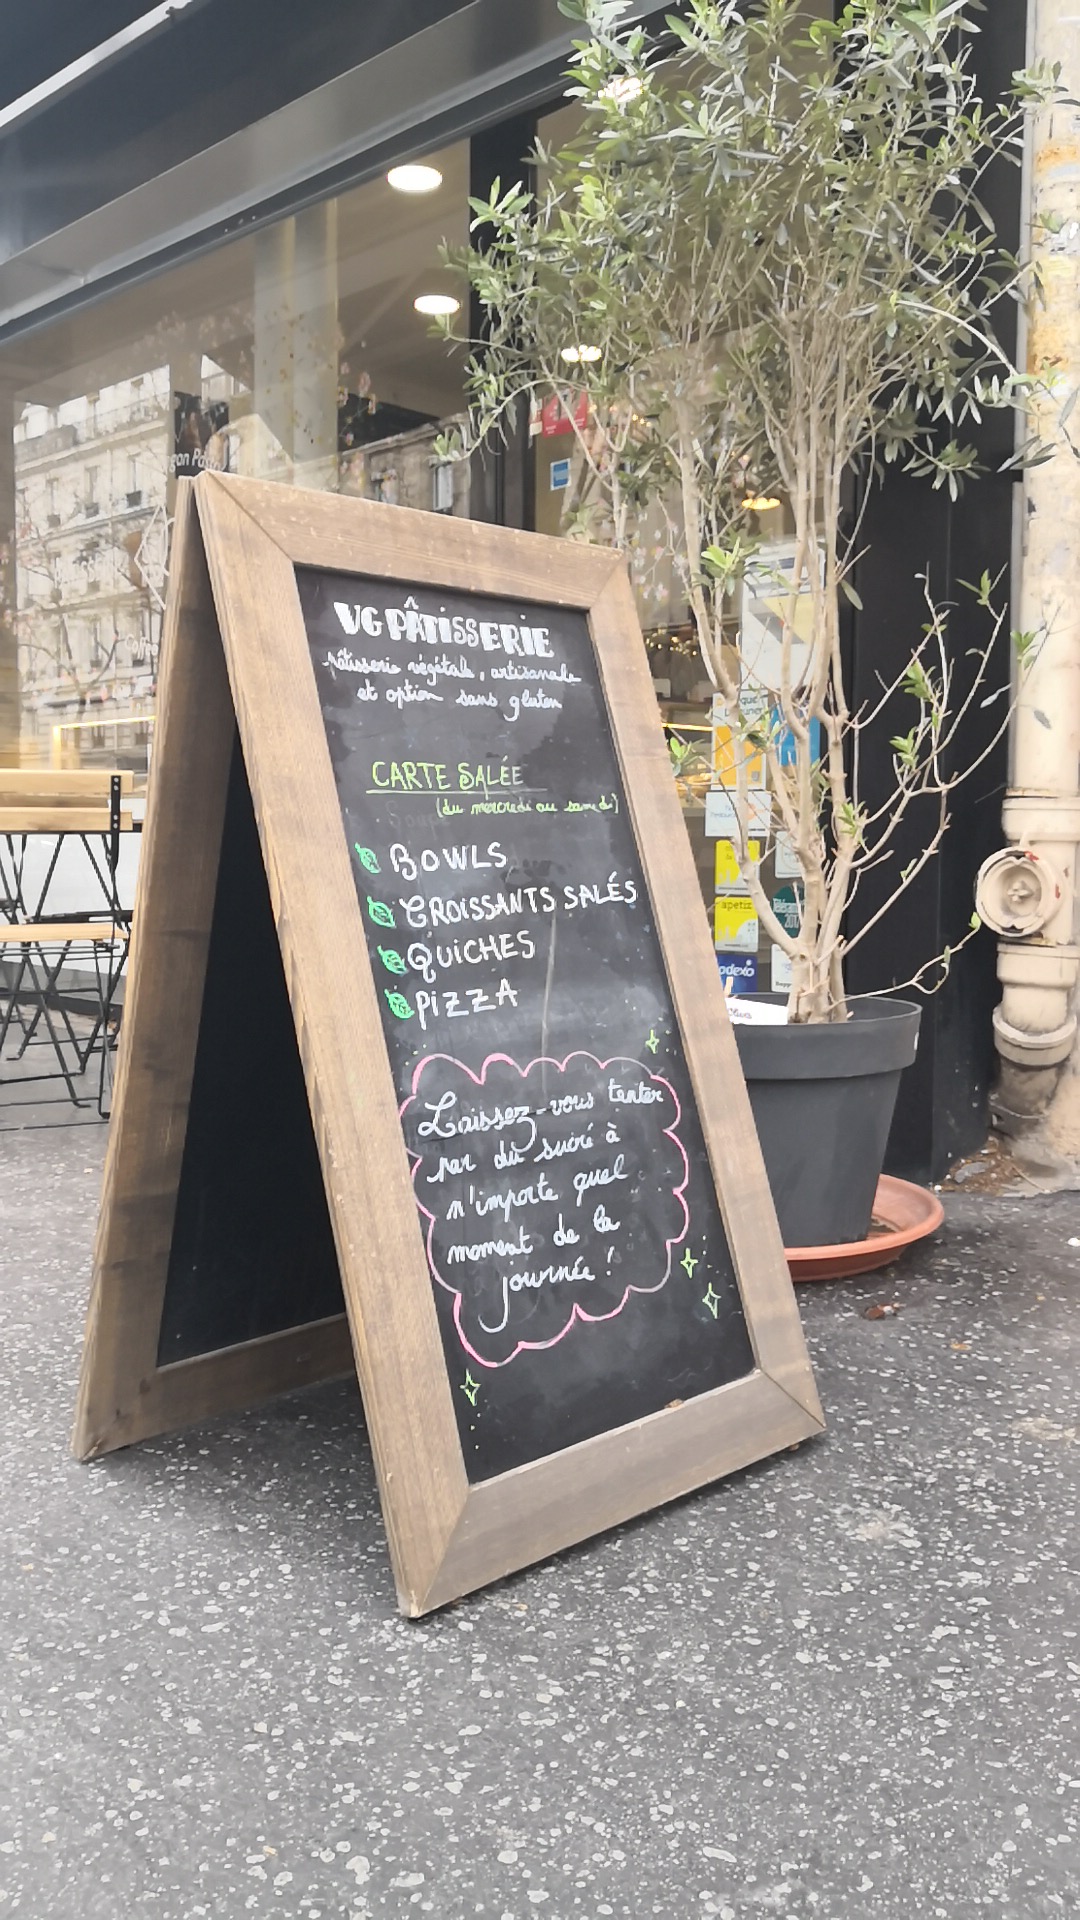 VG PÂTISSERIE
pâtisserie végétale, artisanale
et option sans gluten
CARTE SALÉE
(du mercredi au samedi)
BOWLS
CROISSANTS SALÉS
QUICHES
PIZZA
Laissez-vous tenter
par du sucré à
n'importe quel
moment de la
journée !
apetiz
odexo